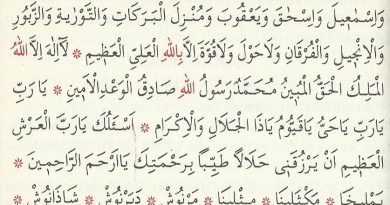 وَاِسْمٰعِيلَ وَاِسْحٰقَ وَيَعْقُوبَ وَمُنْزِلَ الْبَرَكَاتِ وَالتَّوْرٰيةِ وَالزَّبُورِ
وَالْاِنْجِيلِ وَالْفُرْقَانِ وَلَاحَوْلَ وَلَاقُوَّةَ اِلَّا بِاللهِ الْعَلِيِّ الْعَظِيمِ ۞ لَآاِلٰهَ اِلَّا اللهُ
الْمَلِكُ الْحَقُّ الْمُبِينُ مُحَمَّدٌ رَسُولُ اللهِ صَادِقُ الْوَعْدِ الْاَمِينِ ۞ يَارَبِّ
يَارَبِّ يَاحَىُّ يَاقَيُّومُ يَاذَا الْجَلَالِ وَالْاِكْرَامِ ۞ اَسْئَلُكَ يَارَبَّ الْعَرْشِ
الْعَظِيمِ اَنْ يَرْزُقَنِى حَلَالاً طَيِّباً بِرَحْمَتِكَ يَااَرْحَمَ الرَّاحِمِينَ ۞
يَمْلِيخَا ۞ مَكْثَلِينَا ۞ مِثْلِينَا ۞ مَرْنُوشْ ۞ دَبَرْنُوشْ ۞ شَاذَنُوشْ ۞